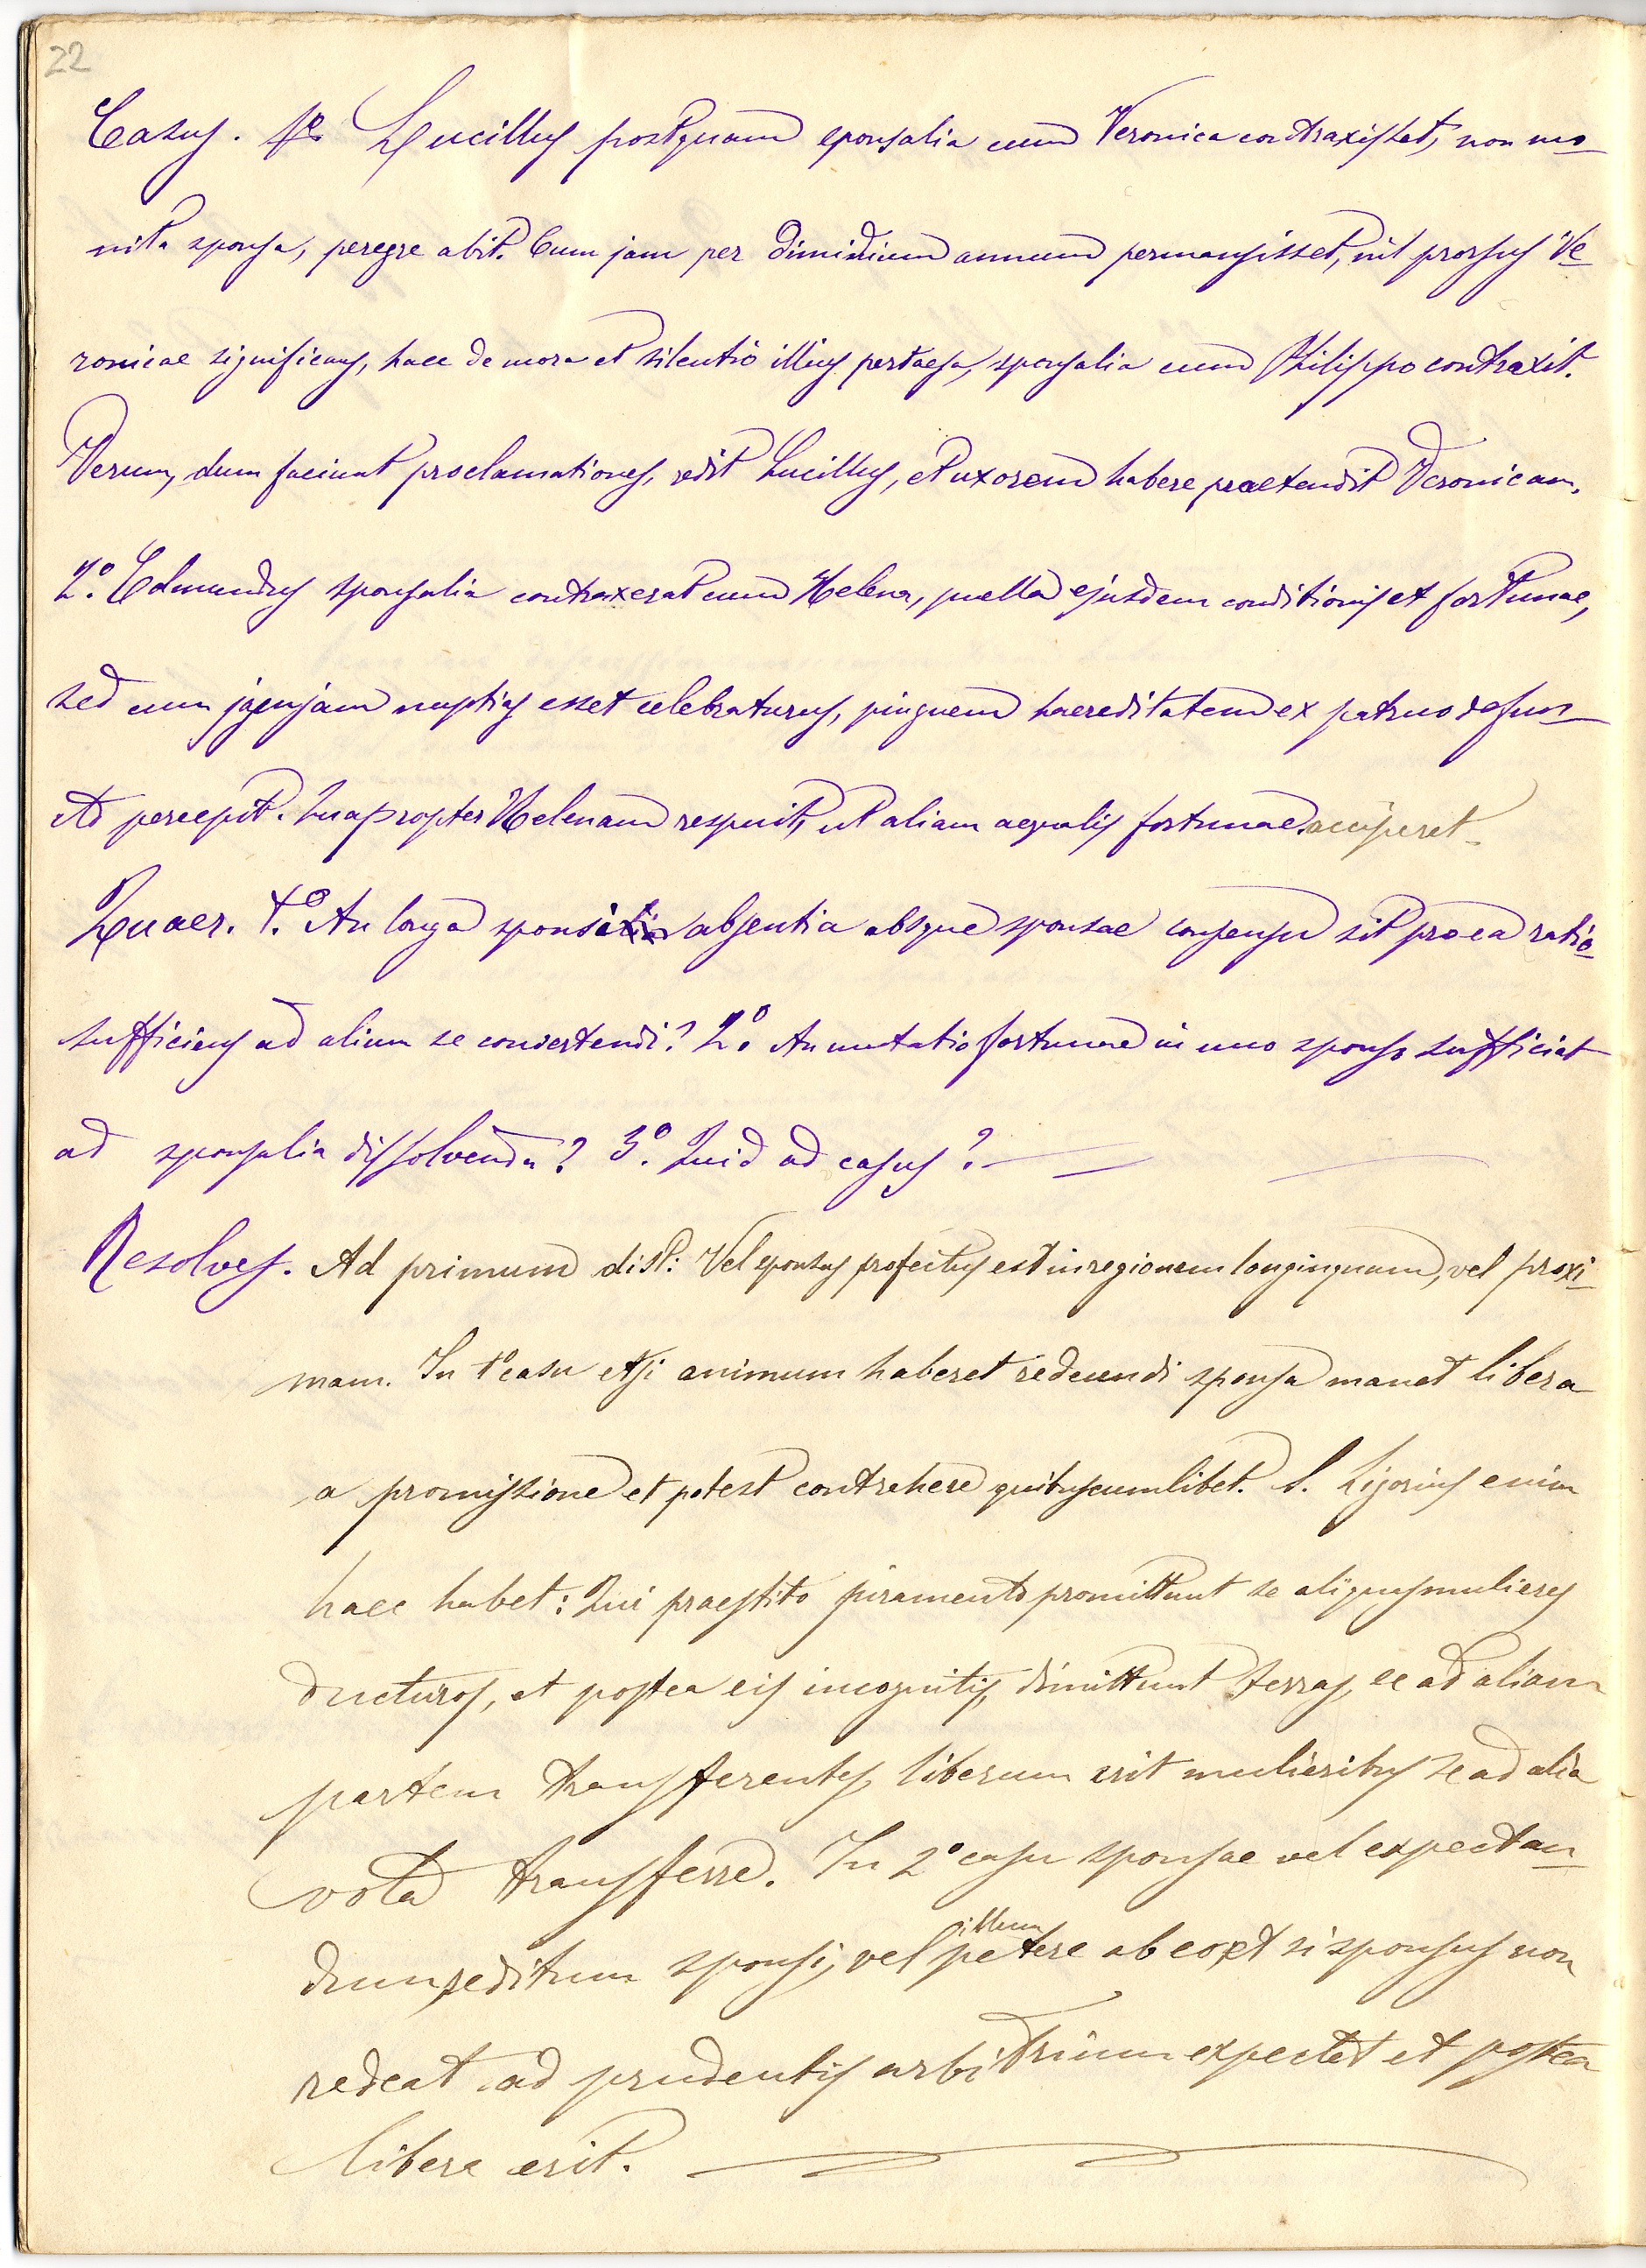 22
Casus. 1º Lucillus postquam sponsalia cum Veronica contraxisset, non mo
nita sponsa, peregre abit. Cum jam per dimidium annum permansisset, nil prorsus Ve
ronicae significans, haec de mora et silentio illius pertaesa, sponsalia cum Philippo contraxit.
Verum, dum faciunt proclamationes, redit Lucillus, et uxorem habere praetendit Veronicam.
2º. Edmundus sponsalia contraxerat cum Helena, puella ejusdem conditionis et fortunae,
sed cum jamjam nuptias esset celebraturus, pinguem haereditatem ex patruo defun
cto percepit. Quapropter Helenam respuit, ut aliam aequalis fortunae acciperet.
Quaer. 1.º An longa sponsi absentia absque sponsae consensu sit pro ea ratio
sufficiens ad alium se convertendi? 2.º An mutatio fortunae in uno sponso sufficiat
ad sponsalia dissolvenda? 3.º Quid ad casus?
Resolves. Ad primum dist: Vel sponsus profectus est in regionem longinquam, vel proxi
mam. In 1º casu etsi animum haberet redeundi sponsa manet libera
a promissione et potest contrahere quibuscumlibet. S. Ligorius enim
haec habet: Qui praestito juramento promittunt se aliquas mulieres
ducturos, et postea eis incognitis, dimittunt terras, se ad aliam
partem transferentes, liberum erit mulieribus se ad alia
vota transferre. In 2º casu sponsae vel expectan
dum reditum sponsi, vel illum petere ab eo, et si sponsus non
redeat ad prudentis arbitrium expectet et postea
libera erit.